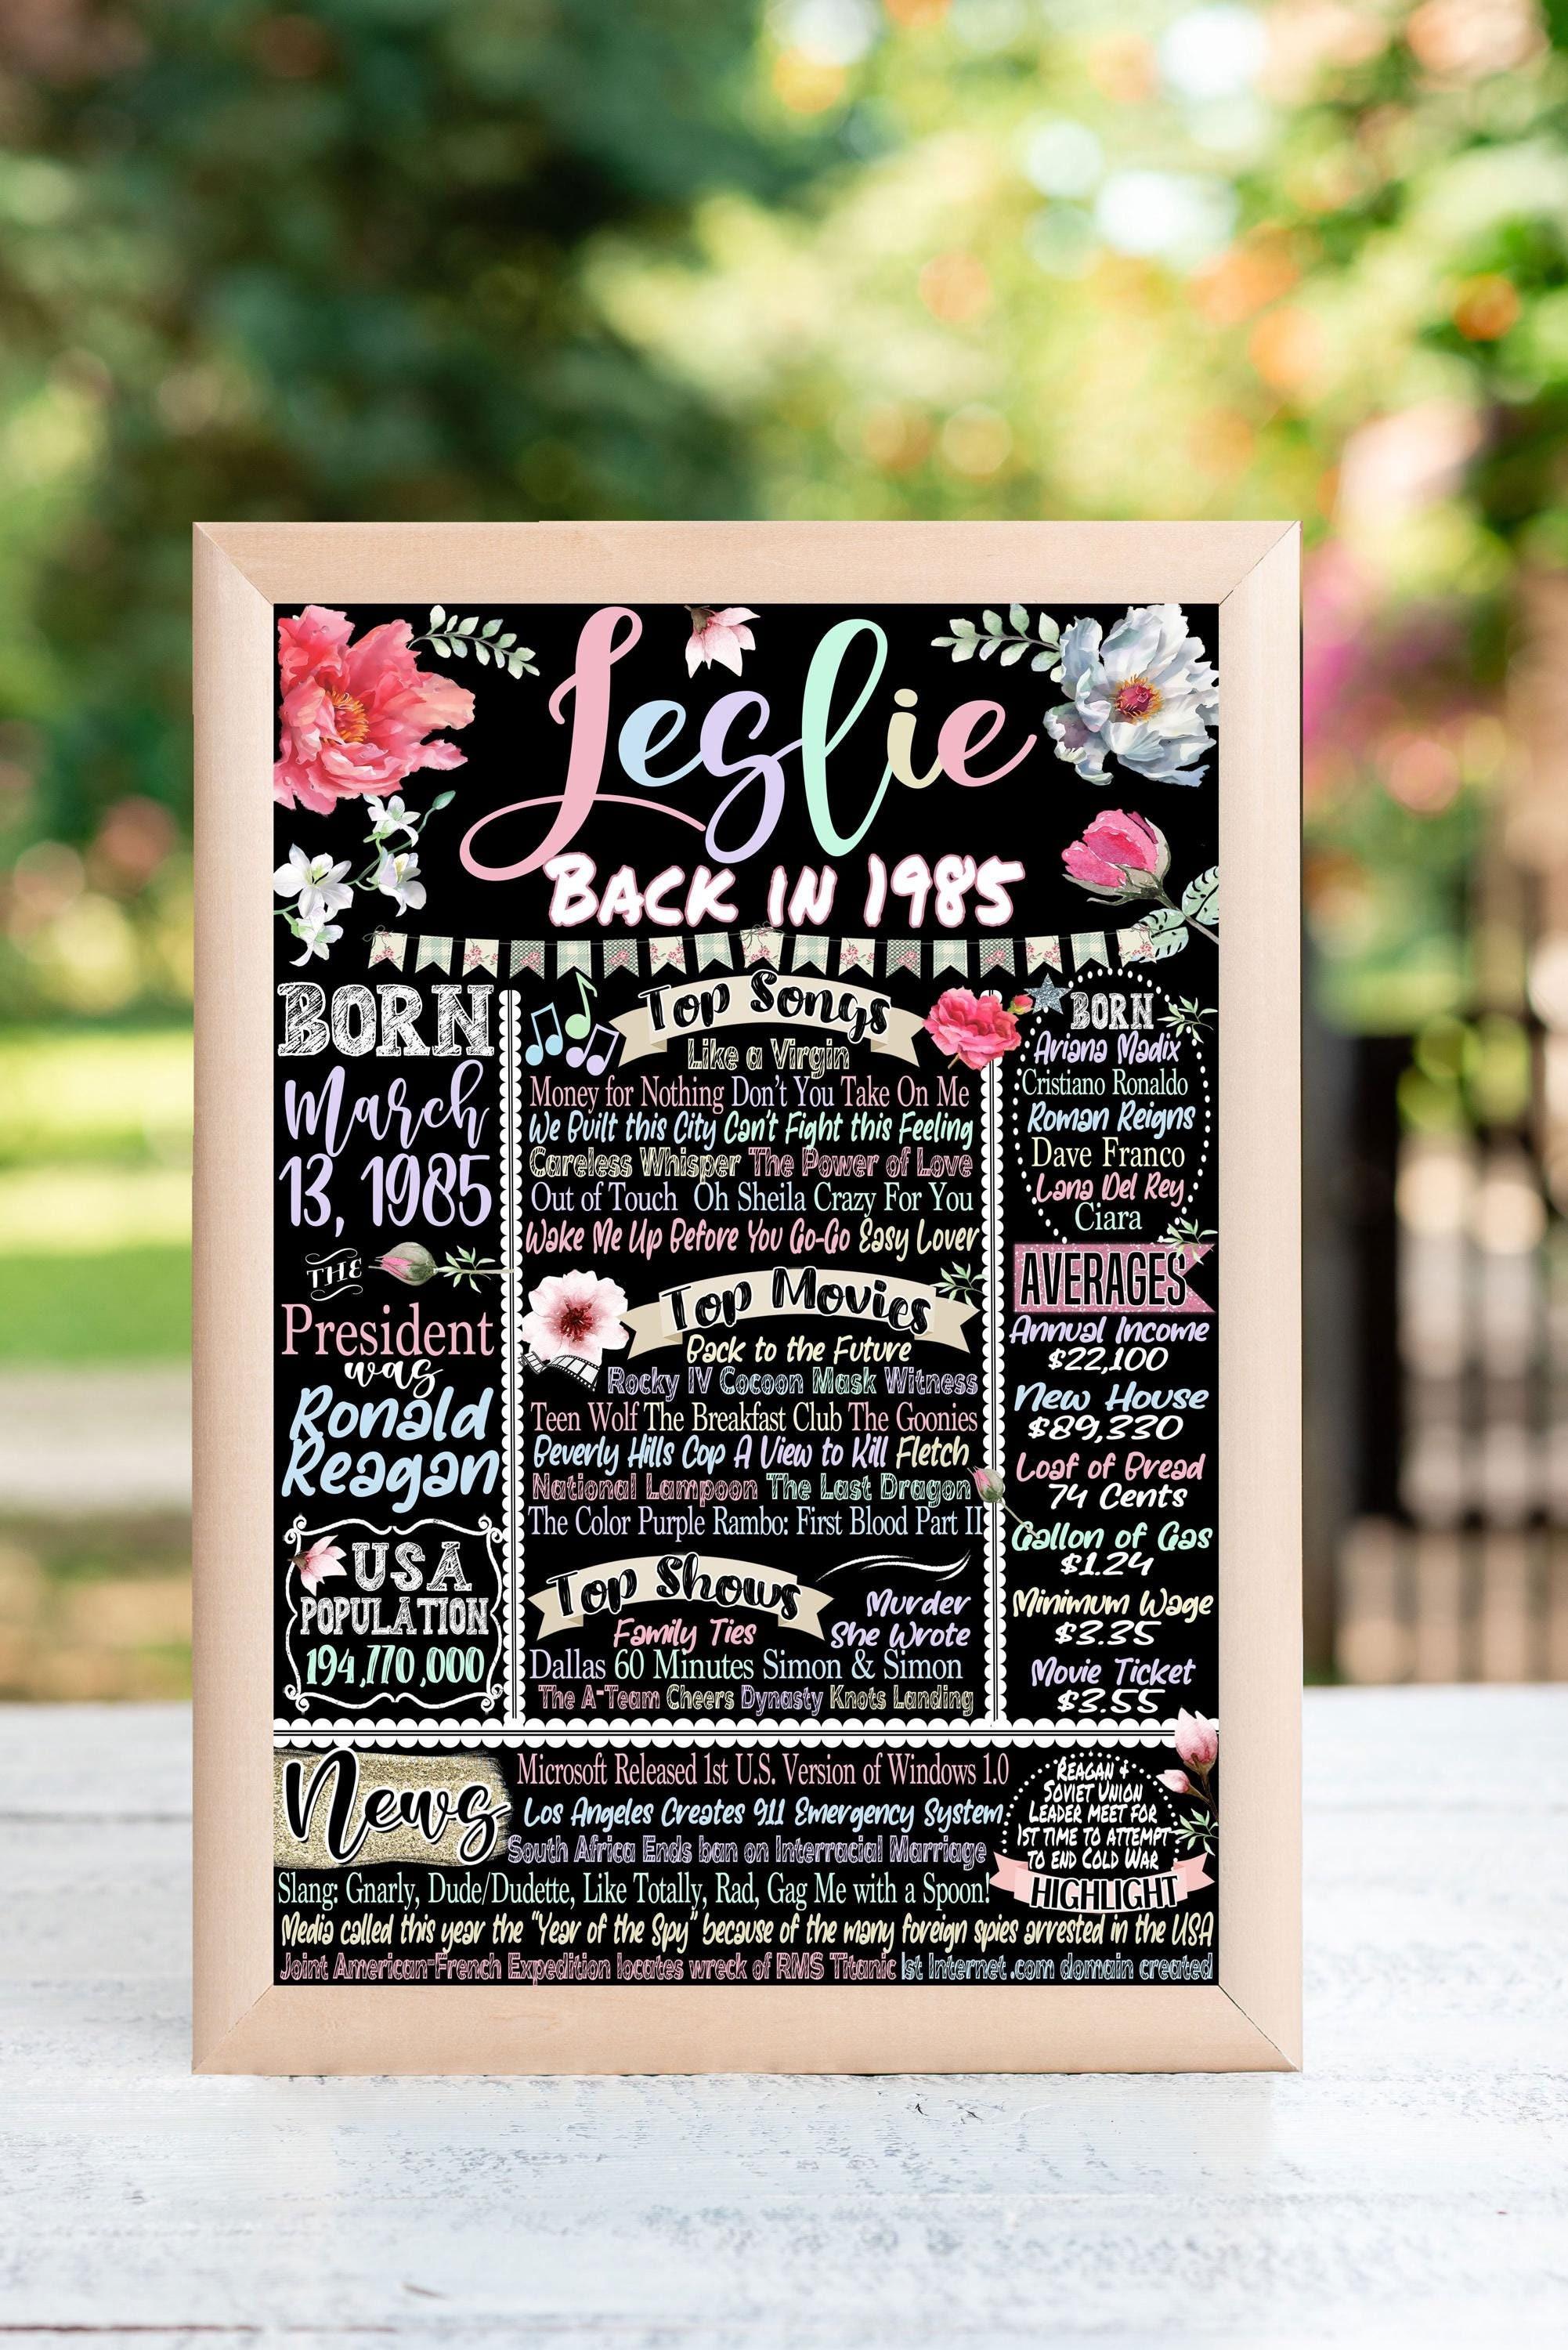 Leslie
BACK IN 1985
BORN
March
13, 1985
THE
President
was
Ronald
Reagan
USA
POPULATION
194,770,000
Top Songs
Like a Virgin
Money for Nothing Don't You Take On Me
We Built this City Can't Fight this Feeling
Careless Whisper The Power of Love
Out of Touch Oh Sheila Crazy For You
Wake Me Up Before You Go-Go Easy Lover
Top Movies
Back to the Future
Rocky IV Cocoon Mask Witness
Teen Wolf The Breakfast Club The Goonies
Beverly Hills Cop A View to Kill Fletch
National Lampoon The Last Dragon
The Color Purple Rambo: First Blood Part II
Top Shows
Murder
She Wrote
Family Ties
Dallas 60 Minutes Simon & Simon
The A-Team Cheers Dynasty Knots Landing
BORN
Ariana Madix
Cristiano Ronaldo
Roman Reigns
Dave Franco
Lana Del Rey
Ciara
AVERAGES
Annual Income
$22,100
New House
$89,330
Loaf of Bread
74 Cents
Gallon of Gas
$1.24
Minimum Wage
$3.35
Movie Ticket
$3.55
News
Microsoft Released 1st U.S. Version of Windows 1.0
Los Angeles Creates 911 Emergency System
South Africa Ends ban on Interracial Marriage
Slang: Gnarly, Dude/Dudette, Like Totally, Rad, Gag Me with a Spoon!
Media called this year the "Year of the Spy" because of the many foreign spies arrested in the USA
Joint American-French Expedition locates wreck of RMS Titanic 1st Internet .com domain created
REAGAN &
SOVIET UNION
LEADER MEET FOR
1ST TIME TO ATTEMPT
TO END COLD WAR
HIGHLIGHT